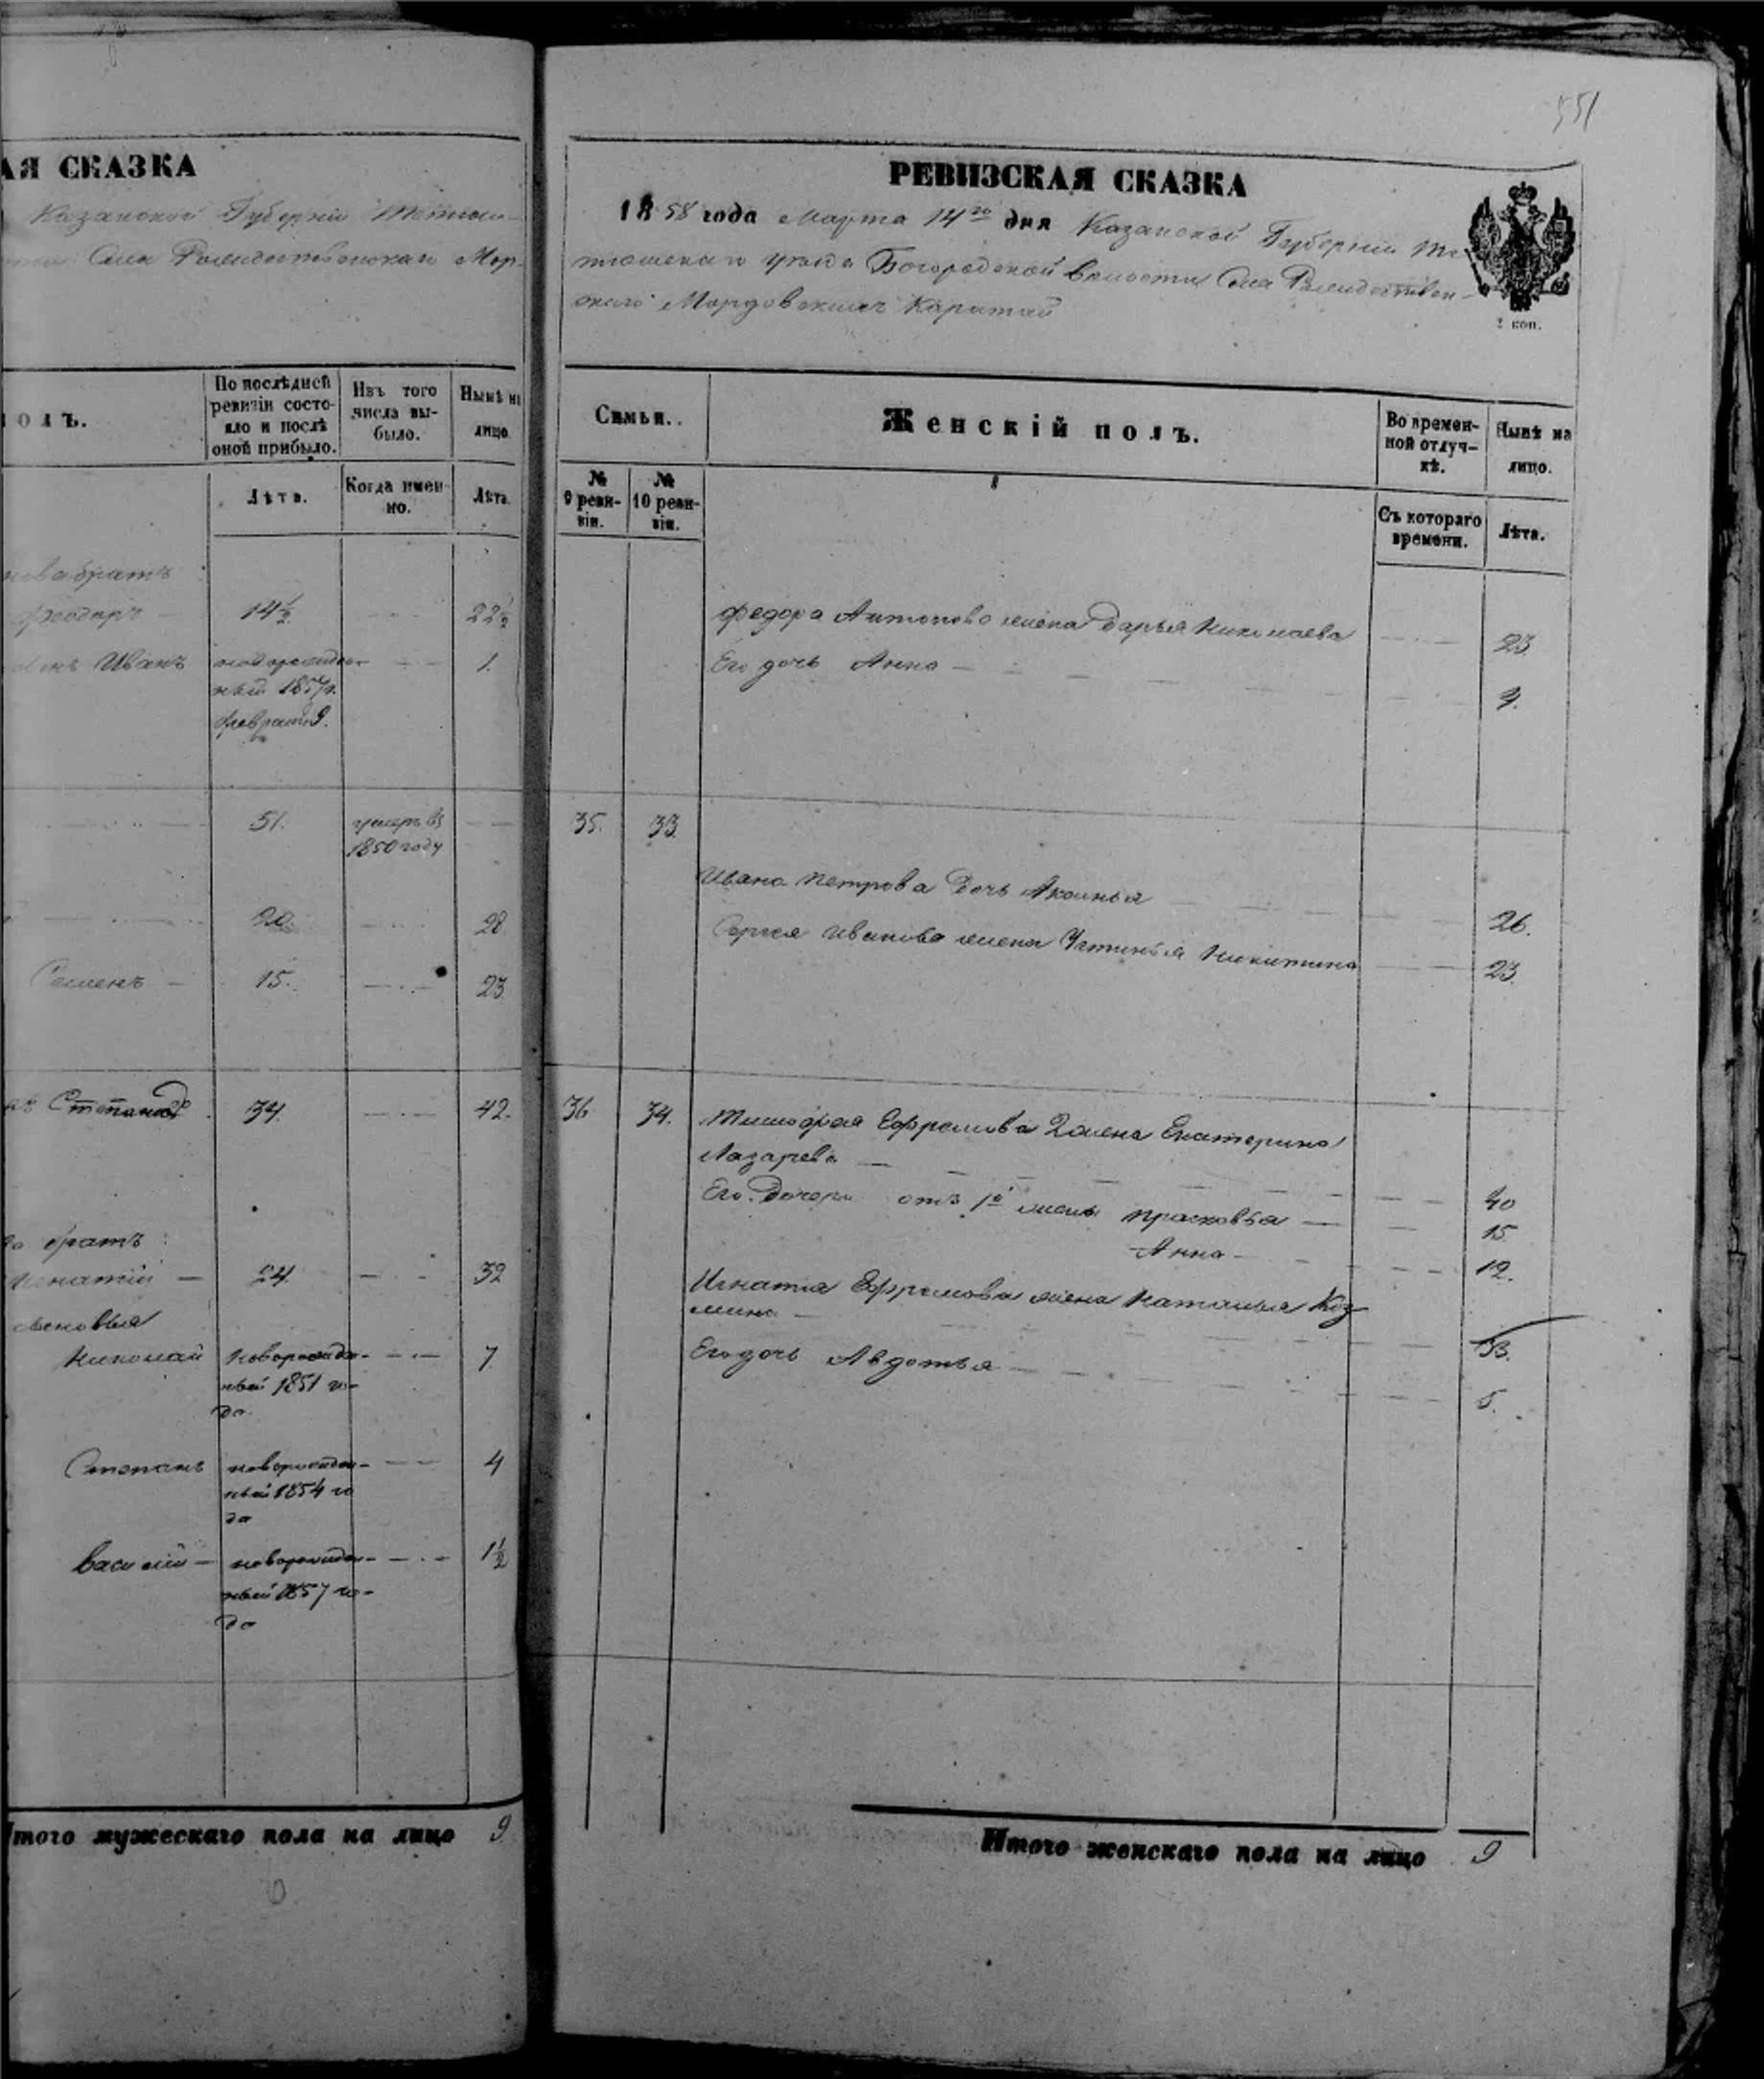 АЯ СКАЗКА
Казанской Губерніи Тетюш-
Села Рождественскаго Мор-
полъ.
По послѣдней ревизіи состо-
яло и послѣ оной прибыло.
Изъ того числа вы-
было.
Нынѣ на
лицо.
Лѣта.
Когда имен-
но.
Лѣта.
нова братъ
Феодоръ — 14½ 22½
сынъ Иванъ новорожден-
ный 1857 г.
февраля 9. 1.
51. умеръ въ
1850 году
20. 28.
Семенъ — 15. 23.
Степановъ 34. 42.
братъ
Игнатій — 24. 32
сыновья
Николай новорожден-
ный 1851 го-
да. 7.
Степанъ новорожден-
ный 1854 го
да 4
Василій — новорожден-
ный 1857 го-
да 1½
Итого мужескаго пола на лицо 9
551
РЕВИЗСКАЯ СКАЗКА
1858 года Марта 14го дня Казанской Губерніи Те-
тюшскаго уѣзда Богородской волости Села Рождествен-
скаго Мордовскихъ Каратай
2 коп.
Семьи.
Женскій полъ.
Во времен-
ной отлуч-
кѣ.
Нынѣ на
лицо.
№
9 реви-
зіи.
№
10 реви-
зіи.
Съ котораго
времени.
Лѣта.
Федора Антонова жена Дарья Николаева 23.
Его дочь Анна —
35. 33.
Ивана Петрова дочь Аксинья 26.
Сергея Иванова жена Устинья Никитина 23.
36 34. Тимофея Ефремова 2 жена Екатерина
Лазарева — 40
Его дочери отъ 1й жены Прасковья — 15.
Анна — 12.
Игнатія Ефремова жена Наталья Коз-
мина — 33.
Его дочь Авдотья — 5.
Итого женскаго пола на лицо 9